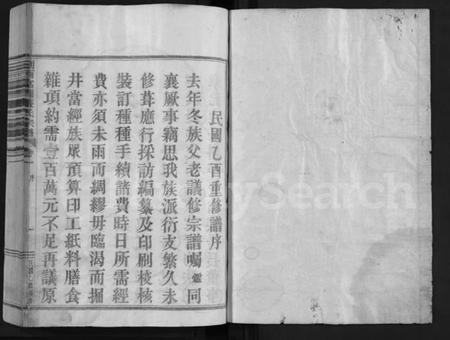 民國乙酉重修譜序
去年冬族父老議修宗譜囑鑑同
襄厥事竊思我族派衍支繁久未
修葺應行採訪編纂及印刷校核
裝訂種種手續諸費時日所需經
費亦須未雨而綢繆毋臨渴而掘
井當經族眾預算印工紙料膳食
雜項約需壹百萬元不足再議原
序
MySearch